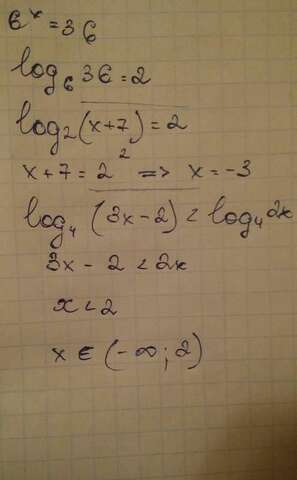 6^x = 36
log₆ 36 = 2
log₂(x+7) = 2
x+7 = 2² => x = -3
log₄ (3x-2) < log₄ 2x
3x - 2 < 2x
x < 2
x ∈ (-∞; 2)